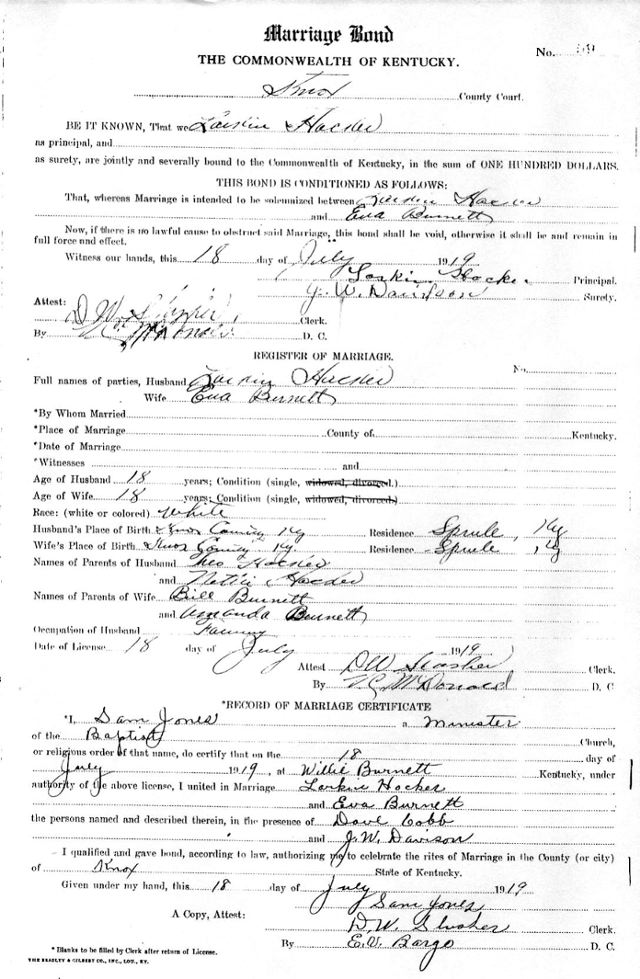 Marriage Bond
No.
THE COMMONWEALTH OF KENTUCKY.
Knox County Court.
BE IT KNOWN, That we Larkin Hacker
as principal, and
as surety, are jointly and severally bound to the Commonwealth of Kentucky, in the sum of ONE HUNDRED DOLLARS.
THIS BOND IS CONDITIONED AS FOLLOWS:
That, whereas Marriage is intended to be solemnized between Larkin Hacker
and Eva Burnett
Now, if there is no lawful cause to obstruct said Marriage, this bond shall be void, otherwise it shall be and remain in
full force and effect.
Witness our hands, this 18 day of July 1919
Larkin Hacker Principal.
J. W. Davidson Surety.
Attest:
D. W. Slusher Clerk.
By V.C. McDonald D. C.
REGISTER OF MARRIAGE.
No.
Full names of parties, Husband Larkin Hacker
Wife Eva Burnett
*By Whom Married
*Place of Marriage County of Kentucky.
*Date of Marriage
*Witnesses and
Age of Husband 18 years; Condition (single, widowed, divorced.)
Age of Wife 18 years; Condition (single, widowed, divorced.)
Race: (white or colored) White
Husband's Place of Birth Knox County Ky Residence Sprule, Ky
Wife's Place of Birth Knox County Ky. Residence Sprule, Ky
Names of Parents of Husband Theo Hacker
and Nettie Hacker
Names of Parents of Wife Bill Burnett
and Amanda Burnett
Occupation of Husband Farming
Date of License 18 day of July 1919
Attest D W Slusher Clerk.
By V C McDonald D. C.
*RECORD OF MARRIAGE CERTIFICATE
*I, Sam Jones a Minister
of the Baptist Church,
or religious order of that name, do certify that on the 18 day of
July 1919, at Willie Burnett Kentucky, under
authority of the above license, I united in Marriage Larkin Hacker
and Eva Burnett
the persons named and described therein, in the presence of Dave Cobb
and J. W. Davison
I qualified and gave bond, according to law, authorizing me to celebrate the rites of Marriage in the County (or city)
of Knox State of Kentucky.
Given under my hand, this 18 day of July 1919
Sam Jones
A Copy, Attest: D. W. Slusher Clerk.
By E. V. Bargo D. C.
* Blanks to be filled by Clerk after return of License.
THE BRADLEY & GILBERT CO., INC., LOU., KY.